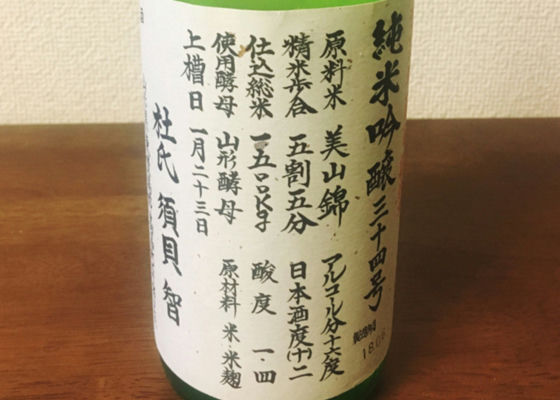 純米吟醸三十四号
原料米 美山錦 アルコール分十六度
精米歩合 五割五分 日本酒度(十)二
仕込総米 一五〇〇Kg 酸度 一・四
使用酵母 山形酵母 原材料 米・米麹
上槽日 一月二十三日
杜氏 須貝 智